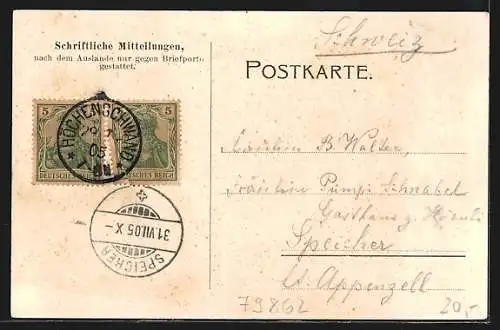 Schriftliche Mitteilungen,
nach dem Auslande nur gegen Briefporto
gestattet.
Schweiz
POSTKARTE.
5 5
DEUTSCHES REICH DEUTSCHES REICH
HÖCHENSCHWAND
05
SPEICHER
31.VII.05 X
Fräulein B. Walser,
Fräulein Pumpi Schnabel
Gasthaus z.
Speicher
Ct. Appenzell
79862
20,-